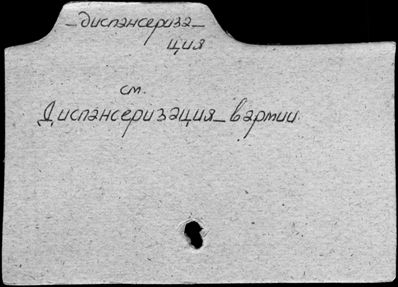 -диспансериза-
ция
см.
Диспансеризация_в армии